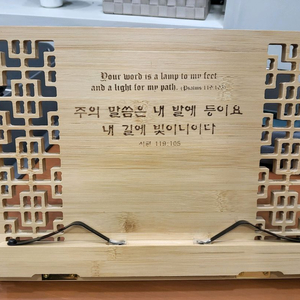 Your word is a lamp to my feet
and a light for my path. (Psalms 119:105)
주의 말씀은 내 발에 등이요
내 길에 빛이니이다
시편 119-105